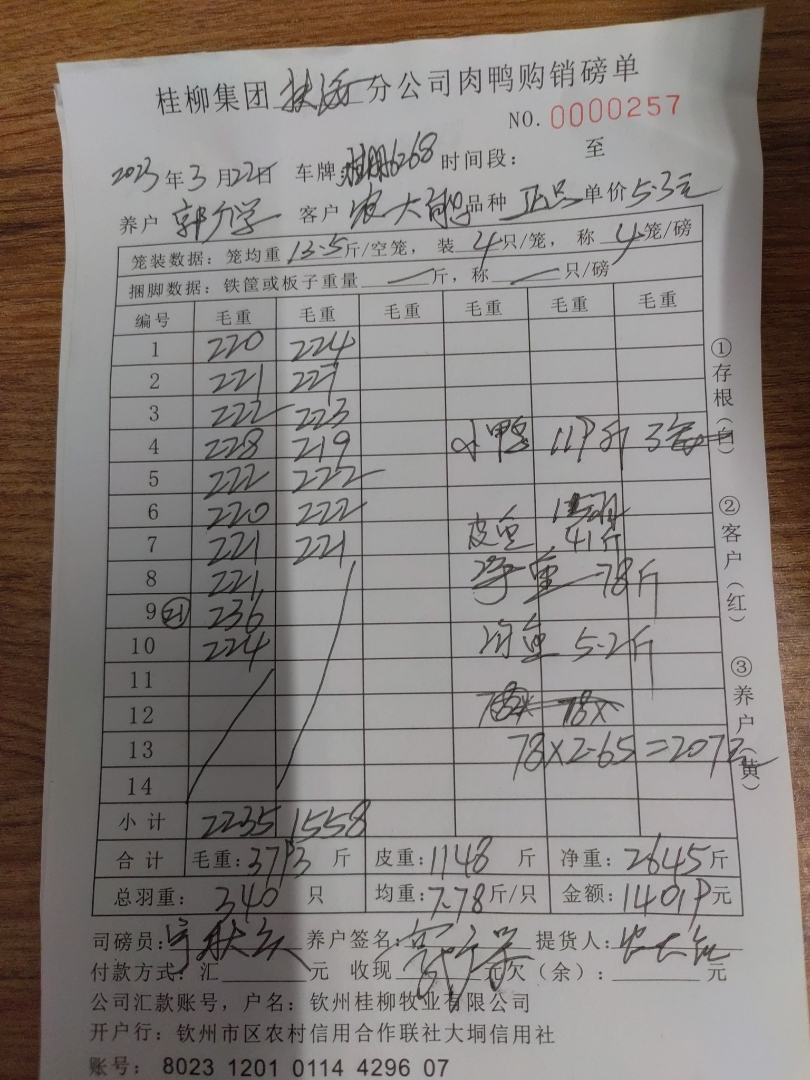 桂柳集团 分公司肉鸭购销磅单
NO. 0000257
2023年3月22日 车牌: 时间段: 至
养户 客户 农大 品种 正品 单价 5.3元
笼装数据：笼均重 13.5 斤/空笼， 装 4 只/笼， 称 4 笼/磅
捆脚数据：铁筐或板子重量 — 斤，称 — 只/磅
编号 毛重 毛重 毛重 毛重 毛重 毛重
1 220 224
2 221 227
3 222 223
4 228 219 小鸭 3
5 222 222
6 220 222
7 221 221 皮重 41斤
8 221 重 78斤
9 ㉑ 236
10 224 重 5.2斤
11
12
13 78×2.65=207元
14
小计 2235 1558
合计 毛重：3793 斤 皮重：1148 斤 净重：2645 斤
总羽重： 340 只 均重：7.78 斤/只 金额：14019 元
司磅员： 养户签名： 提货人：
付款方式：汇 元 收现 元欠（余）： 元
公司汇款账号，户名：钦州桂柳牧业有限公司
开户行：钦州市区农村信用合作联社大垌信用社
账号： 8023 1201 0114 4296 07
①存根（白）
②客户（红）
③养户（黄）